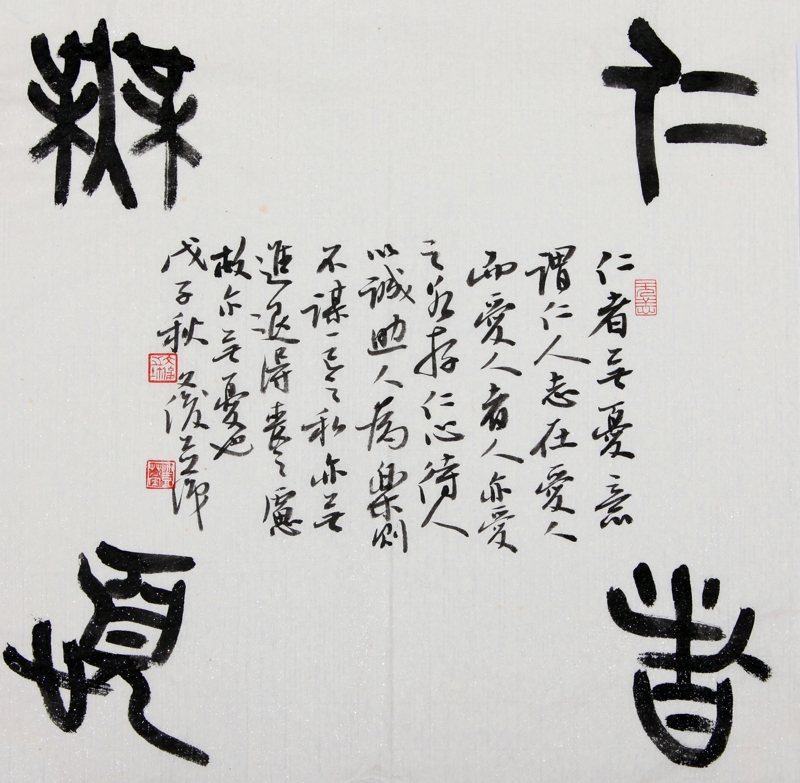 仁
者
無
憂
仁者無憂意
謂仁人志在愛人
而愛人者人亦愛
之若存仁心待人
以誠助人為樂則
不謀一己之私亦無
進退得喪之慮
故亦無憂也
戊子秋